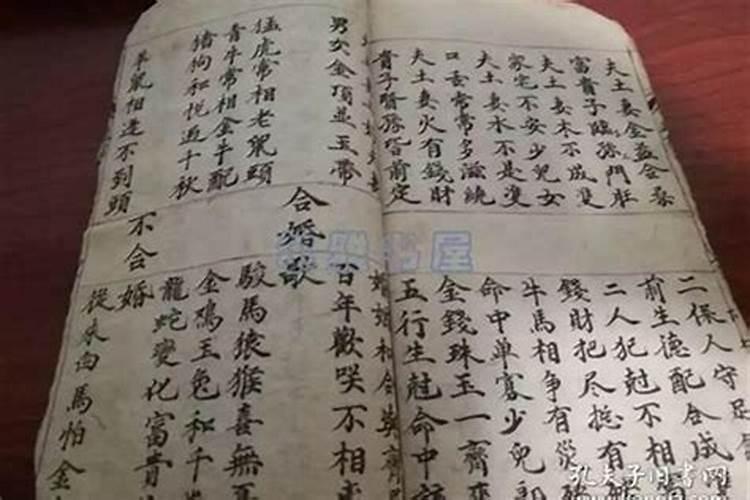 夫土妻金益合
富貴子臨孫門
夫土妻木不成雙
家宅不安少兒女
夫土妻水不是雙
口舌常常多滋繞
夫土妻火有錢財
貴子賢孫皆前定
二保人守足
前生德配合成
二人犯尅不相
錢財把尽挺有
牛馬相争有災
命中单寡少兒郎
金錢珠玉一齊來
五行生尅命中該
婚姻和合
男女金頂並玉帶
百年歡咲不相
合婚歌
猛虎常相老鼠頭
駿馬猿猴喜無
青牛常相金牛配
金鸡玉兔和千
猪狗和悦过千秋
龍蛇變化富貴
不合婚
羊鼠相逢不到頭
從来白馬怕金
孔夫子旧书网